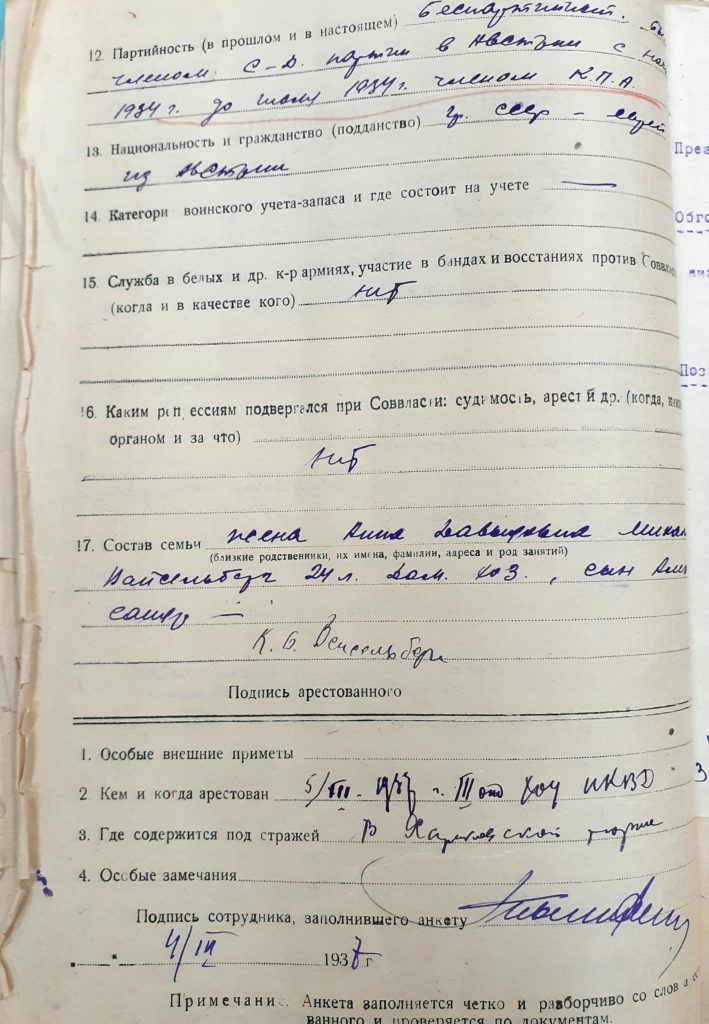 12. Партийность (в прошлом и в настоящем) беспартийный.
членом С-Д. партии в Австрии с
1934 г. до июля 1934 г. членом К.П.А.
13. Национальность и гражданство (подданство) гр. ссср – еврей
из Австрии
14. Категори воинского учета-запаса и где состоит на учете —
15. Служба в белых и др. к-р армиях, участие в бандах и восстаниях против Соввлас
(когда и в качестве кого) нет
16. Каким реп ессиям подвергался при Соввласти: судимость, арест и др. (когда, как
органом и за что)
нет
17. Состав семьи жена Анна Давыдовна
(близкие родственники, их имена, фамилии, адреса и род занятий)
Вайсельберг 24 л. дом. хоз., сын
сандр —
К. Б. Вейсельберг
Подпись арестованного
1. Особые внешние приметы
2. Кем и когда арестован 5/III - 1937 г. III отд ХОУ НКВД
3. Где содержится под стражей В Харьковской тюрьме
4. Особые замечания
Подпись сотрудника, заполнившего анкету
4/III 1937 г
Примечание. Анкета заполняется четко и разборчиво со слов а
ванного и проверяется по документам.
През
Обго
Поз